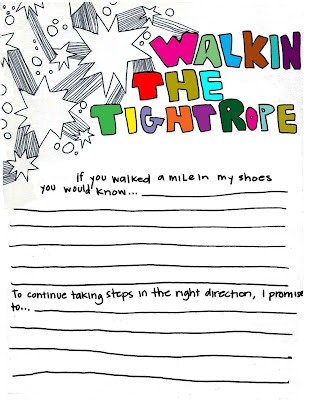 WALKIN
THE
TIGHTROPE
If you walked a mile in my shoes
you would know...
To continue taking steps in the right direction, I promise
to...